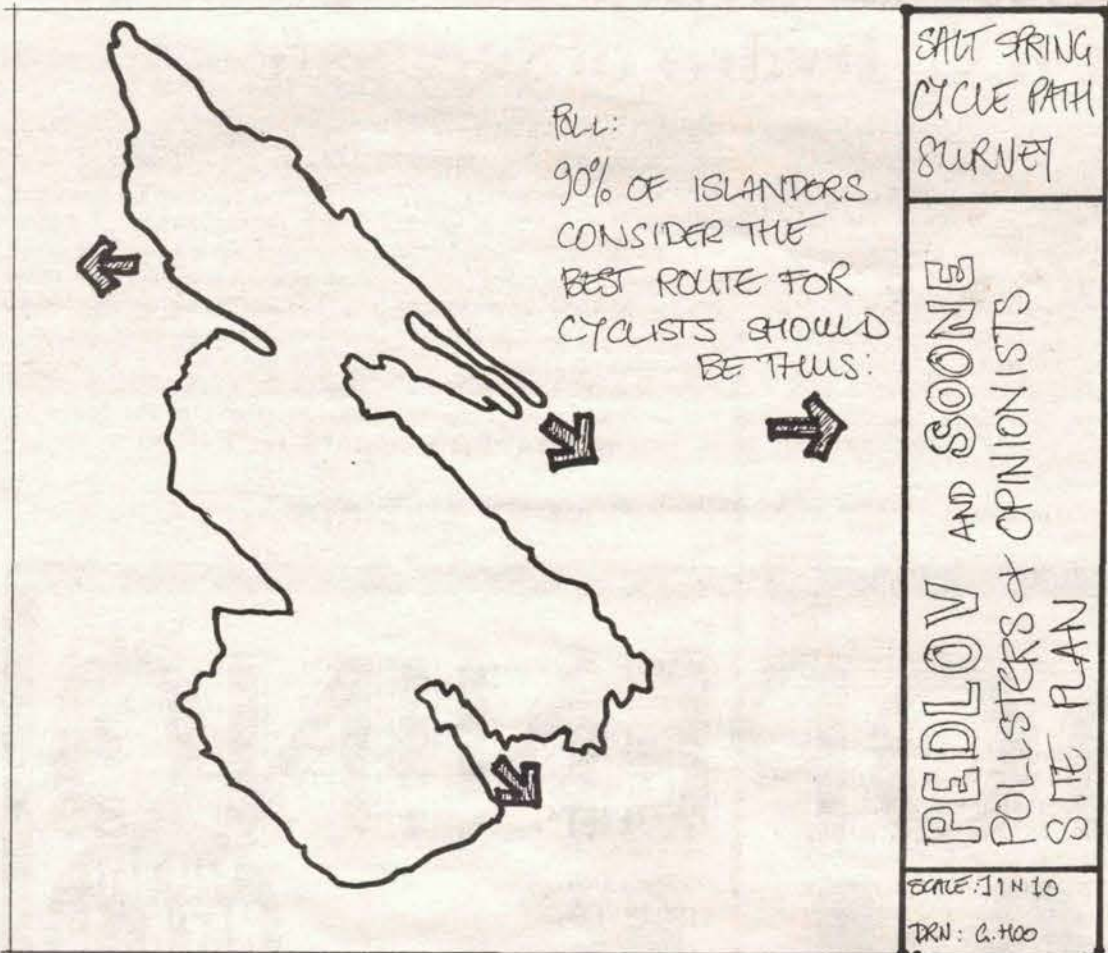 POLL:
90% OF ISLANDORS
CONSIDER THE
BEST ROUTE FOR
CYCLISTS SHOULD
BE THUS:
SALT SPRING
CYCLE PATH
SURVEY
PEDLOV AND SOONE
POLLSTERS & OPINIONISTS
SITE PLAN
SCALE: 1 IN 10
DRN: G. HOO